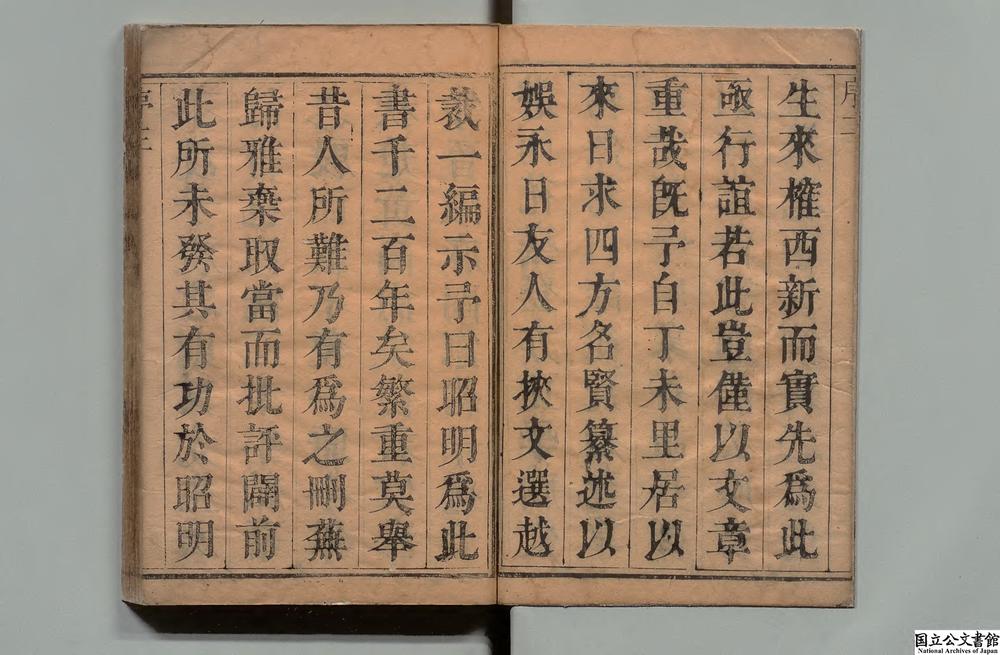 生來榷西新而實先爲此
亟行誼若此豈僅以文章
重哉旣予自丁未里居以
來日求四方名賢纂述以
娛永日友人有挾文選越
裁一編示予曰昭明爲此
書千二百年矣繁重莫舉
昔人所難乃有爲之刪蕪
歸雅棄取當而批評闢前
此所未發其有功於昭明
国立公文書館
National Archives of Japan